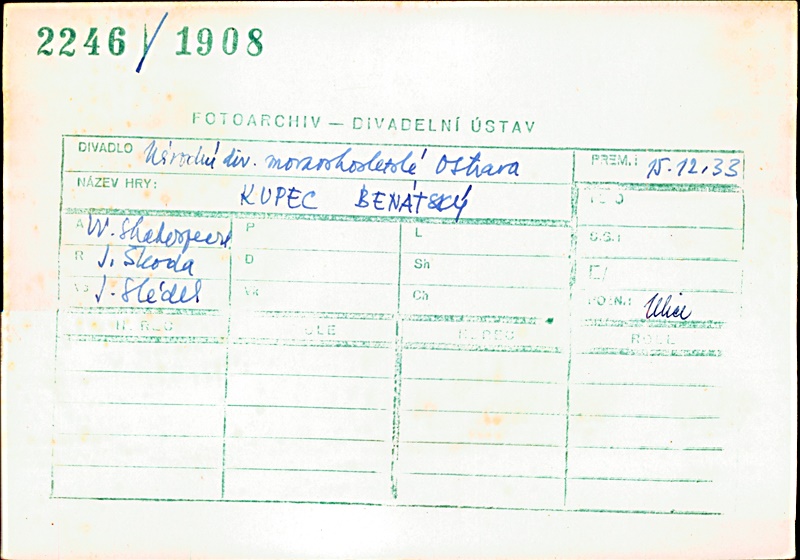 2246/1908
FOTOARCHIV — DIVADELNÍ ÚSTAV
DIVADLO Národní div. moravskoslezské Ostrava PREM.: 15.12.33
NÁZEV HRY: KUPEC BENÁTSKÝ
A W. Shakespeare P L
R J. Škoda D Sh
J. Sládek Ch
POZN.: Ulice
HEREC ROLE HEREC ROLE